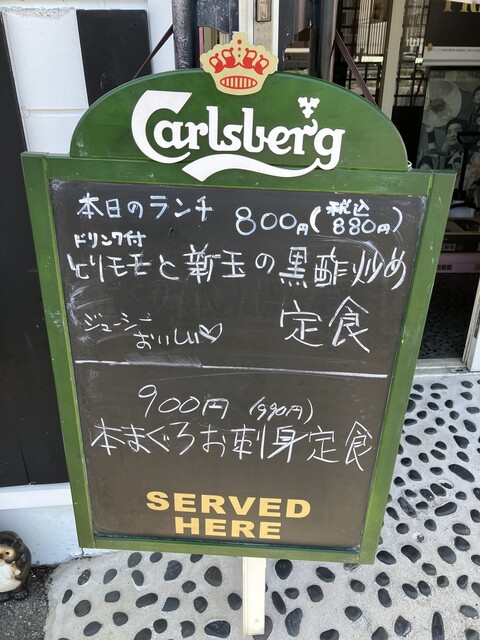 Carlsberg
本日のランチ 800円(税込880円)
ドリンク付
とりモモと新玉の黒酢炒め
定食
ジューシー
おいしい♡
900円 (990円)
本まぐろお刺身定食
SERVED
HERE